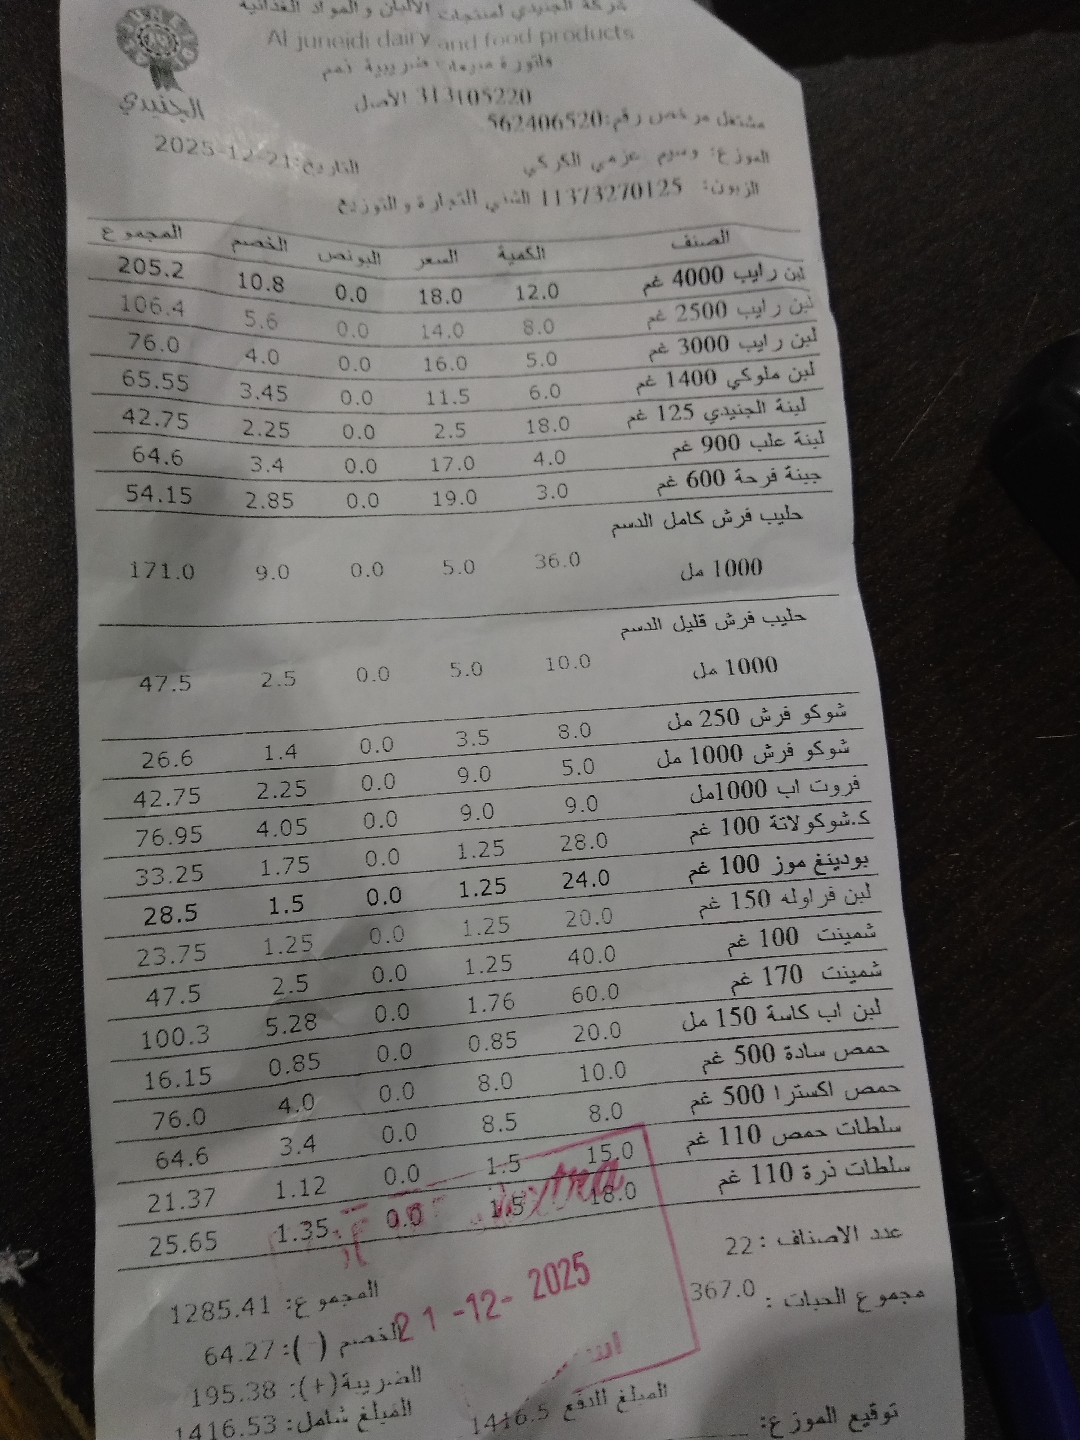 شركة الجنيدي لمنتجات الألبان والمواد الغذائية
Al juneidi dairy and food products
فاتورة مبيعات ضريبية ذمم
313105220 الأصل
الجنيدي
مشتغل مرخص رقم:562406520
التاريخ: 2025-12-21
الموزع: وسيم عزمي الكركي
الزبون: 11373270125 الشني التجارة والتوزيع
الصنف الكمية السعر البونص الخصم المجموع
لبن رايب 4000 غم 12.0 18.0 0.0 10.8 205.2
لبن رايب 2500 غم 8.0 14.0 0.0 5.6 106.4
لبن رايب 3000 غم 5.0 16.0 0.0 4.0 76.0
لبن ملوكي 1400 غم 6.0 11.5 0.0 3.45 65.55
لبنة الجنيدي 125 غم 18.0 2.5 0.0 2.25 42.75
لبنة علب 900 غم 4.0 17.0 0.0 3.4 64.6
جبنة فرحة 600 غم 3.0 19.0 0.0 2.85 54.15
حليب فرش كامل الدسم
1000 مل 36.0 5.0 0.0 9.0 171.0
حليب فرش قليل الدسم
1000 مل 10.0 5.0 0.0 2.5 47.5
شوكو فرش 250 مل 8.0 3.5 0.0 1.4 26.6
شوكو فرش 1000 مل 5.0 9.0 0.0 2.25 42.75
فروت اب 1000مل 9.0 9.0 0.0 4.05 76.95
ك.شوكولاتة 100 غم 28.0 1.25 0.0 1.75 33.25
بودينغ موز 100 غم 24.0 1.25 0.0 1.5 28.5
لبن فراوله 150 غم 20.0 1.25 0.0 1.25 23.75
شمينت 100 غم 40.0 1.25 0.0 2.5 47.5
شمينت 170 غم 60.0 1.76 0.0 5.28 100.3
لبن اب كاسة 150 مل 20.0 0.85 0.0 0.85 16.15
حمص سادة 500 غم 10.0 8.0 0.0 4.0 76.0
حمص اكسترا 500 غم 8.0 8.5 0.0 3.4 64.6
سلطات حمص 110 غم 15.0 1.5 0.0 1.12 21.37
سلطات ذرة 110 غم 18.0 1.5 0.0 1.35 25.65
عدد الاصناف : 22
مجموع الحبات : 367.0
المجموع: 1285.41
الخصم (-): 64.27
الضريبة(+): 195.38
المبلغ شامل: 1416.53
المبلغ للدفع 1416.5
توقيع الموزع:
extra
21 -12- 2025